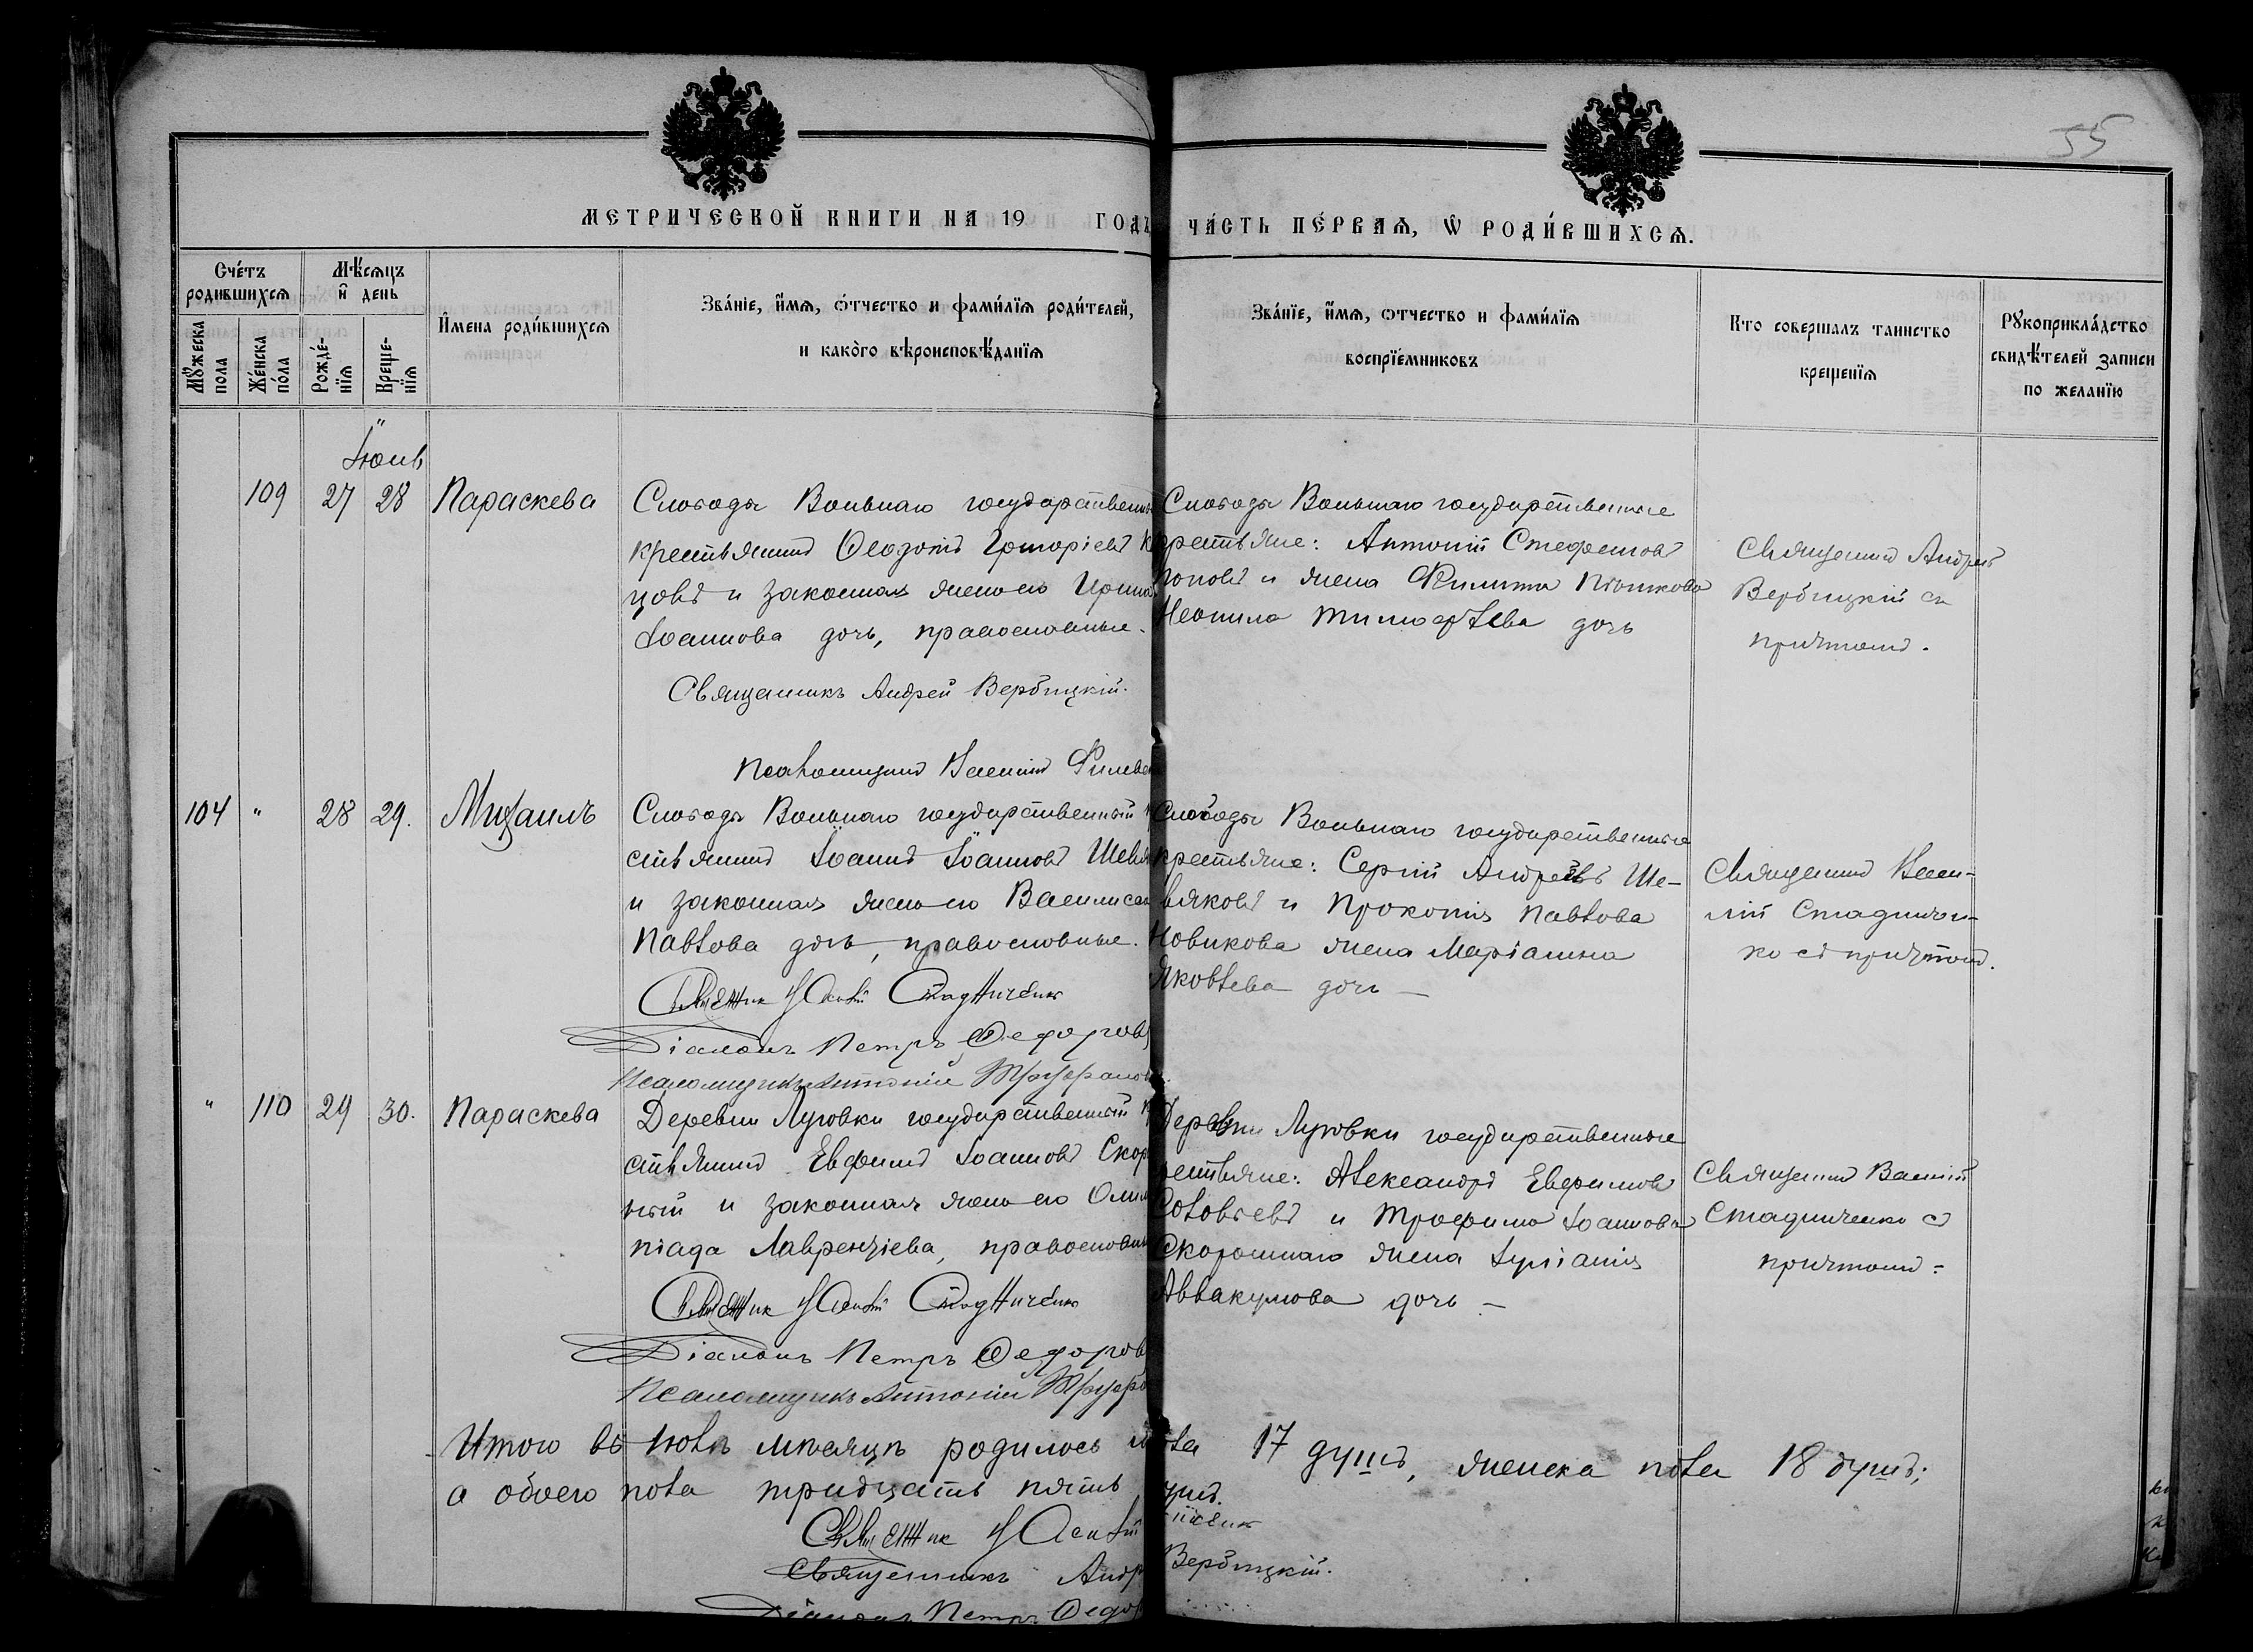 55
МЕТРИЧЕСКОЙ КНИГИ НА 19 ГОДЪ
ЧА́СТЬ ПЕ́РВАѦ, Ѡ РОДИ́ВШИХСѦ.
Сче́тъ родившихсѧ
Мѣ́сѧцъ и҆ день
И҆мена роди́вшихсѧ
Зва́нїе, и҆мѧ, ѻ҆тчество и фами́лїѧ роди́телей,
и како́го вѣроисповѣ́данїѧ
Зва́нїе, и҆мѧ, ѻтчество и фами́лїѧ
воспрїе́мниковъ
Кто совершалъ таинство
крещенїѧ
Рꙋкоприкла́дство
свидѣ́телей записи
по желанїю
Мꙋ́жеска пола
Же́нска по́ла
Рожде́-нїѧ
Креще-нїѧ
Іюнь
109 27 28 Параскева
Слободы Вольнаго государственный
крестьянинъ Ѳеодотъ Григоріевъ
цовъ и законная жена его Ирина
Іоаннова дочь, православные.
Священникъ Андрей Вербицкій.
Псаломщикъ Василій
Слободы Вольнаго государственные
крестьяне: Антоній Стефановъ
Поповъ и жена Филиппа
Неонила Тимофѣева дочь
Священникъ Андрей
Вербицкій съ
причтомъ.
104 " 28 29. Михаилъ
Слободы Вольнаго государственный
стьянинъ Іоаннъ Іоанновъ
и законная жена его Василиса
Павлова дочь, православные.
Священник Василій Стадниченко
Діаконъ Петръ Ѳедоровъ
Псаломщикъ Антоній
Слободы Вольнаго государственные
крестьяне: Сергій Андреевъ Ше-
вляковъ и Прокопія Павлова
Новикова жена Маріамна
Яковлева дочь —
Священникъ Васи-
лій Стадничен-
ко съ причтомъ.
" 110 29 30. Параскева
Деревни Луговки государственный
стьянинъ Евфимъ Іоанновъ Скор
ный и законная жена его Олим
піада Лаврентіева, православн
Священник Василій Стадниченко
Діаконъ Петръ Ѳедоров
Псаломщикъ Антоній
Деревни Луговки государственные
крестьяне: Александръ Евфимовъ
Соловьевъ и Трофима Іоаннова
Скоромнаго жена Іуліанія
Аввакумова дочь —
Священникъ Василій
Стадниченко съ
причтомъ =
Итого въ іюнѣ мѣсяцѣ родилось пола 17 душъ, женска пола 18 душъ;
а обоего пола тридцать пять душъ.
Священник Василій
Священникъ Андр Вербицкій.
Діаконъ Петръ Ѳедор